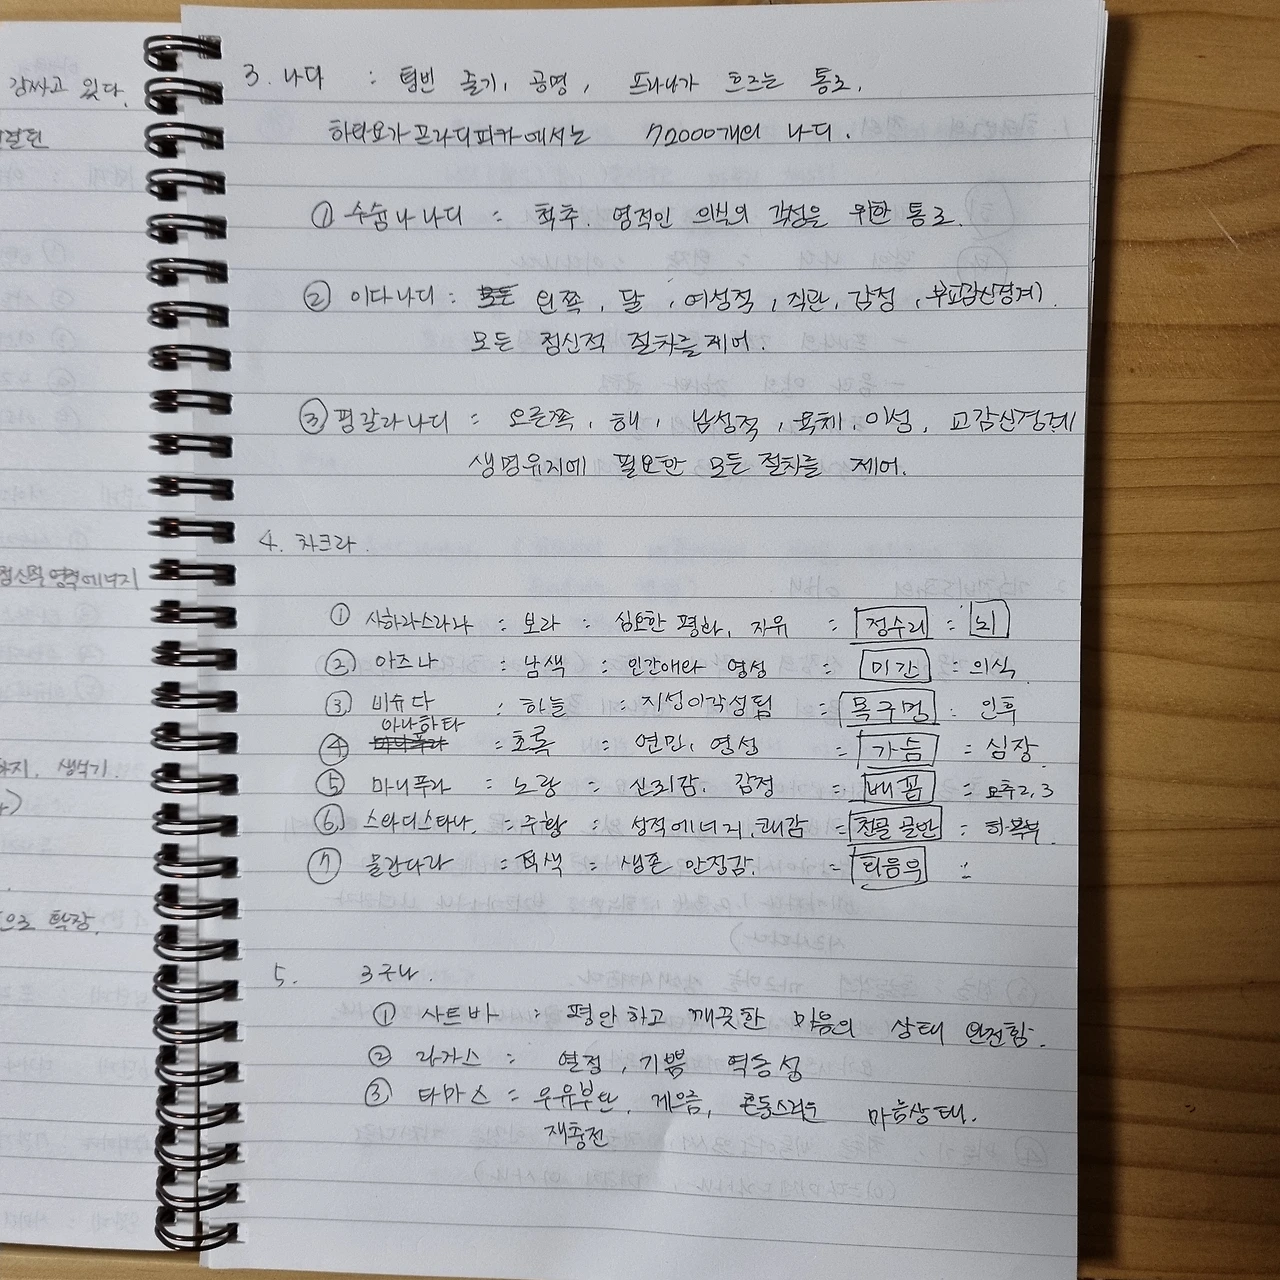 감싸고 있다.
3. 나다 : 텅빈 줄기, 공명, 프라나가 흐르는 통로.
하타요가프라디피카에서는 72000개의 나디.
① 수슘나 나디 : 척추. 영적인 의식의 각성을 위한 통로.
② 이다나디 : 왼쪽, 달, 여성적, 직관, 감정, 부교감신경계).
모든 정신적 절차를 제어.
③ 핑갈라나디 : 오른쪽, 해, 남성적, 육체, 이성, 교감신경계
생명유지에 필요한 모든 절차를 제어.
4. 차크라.
정신적 영적에너지
① 사하라스라라 : 보라 : 심오한 평화, 자유 = 정수리 = 뇌
② 아즈나 : 남색 : 인간애와 영성 = 미간 = 의식
③ 비슈다 : 하늘 : 지성이각성됨 = 목구멍 : 인후
아나하타
④ = 초록 = 연민, 영성 = 가슴 = 심장.
하지, 생식기.
⑤ 마니푸라 = 노랑 = 신뢰감, 감정 = 배꼽 = 요추2, 3
⑥ 스와디스타나. = 주황 = 성적에너지, 쾌감 = 천골 골반 : 하복부.
⑦ 물라다라 = 적색 = 생존 안정감. = 회음부 =
으로 확장.
5. 3구나.
① 사트바 : 평안하고 깨끗한 마음의 상태 완전함.
② 라가스 : 열정, 기쁨 역동성
③ 타마스 : 우유부단, 게으름, 혼동스러운 마음상태.
재충전